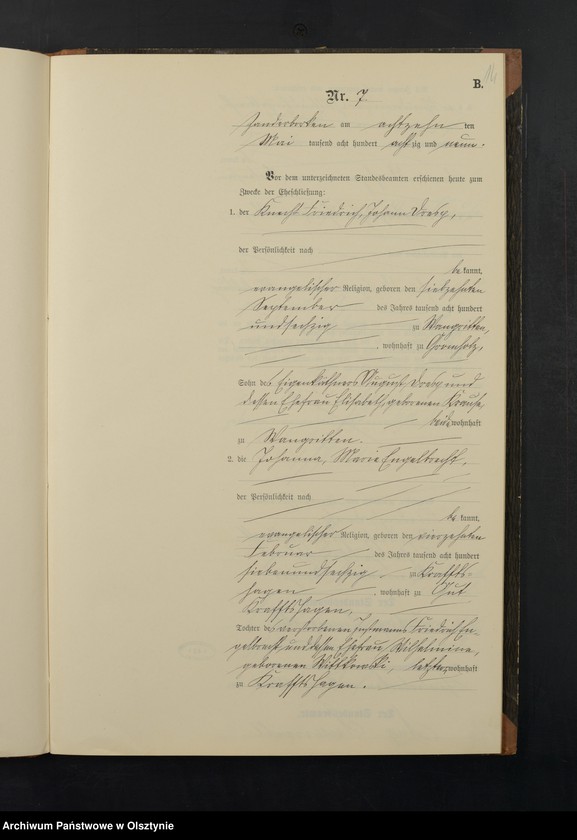 14
B.
Nr. 7
am achtzehn ten
Mai tausend acht hundert achtzig und neun.
Vor dem unterzeichneten Standesbeamten erschienen heute zum
Zwecke der Eheschließung:
1. der Knecht Friedrich, Johann
der Persönlichkeit nach
be kannt,
evangelischer Religion, geboren den siebzehnten
September des Jahres tausend acht hundert
undsechzig zu Wangritten,
, wohnhaft zu
Sohn des Eigenkäthners August und
dessen Ehefrau Elisabeth, geborenen Krause,
beide wohnhaft
zu Wangritten.
2. die Johanna, Marie Engelbrecht,
der Persönlichkeit nach
be kannt,
evangelischer Religion, geboren den vierzehnten
Februar des Jahres tausend acht hundert
siebenundsechzig zu Kraffts-
hagen , wohnhaft zu Gut
Krafftshagen.
Tochter des verstorbenen Instmanns Friedrich En-
gelbrecht und dessen Ehefrau Wilhelmine,
geborenen Wittkowski, letztere wohnhaft
zu Krafftshagen.
Archiwum Państwowe w Olsztynie